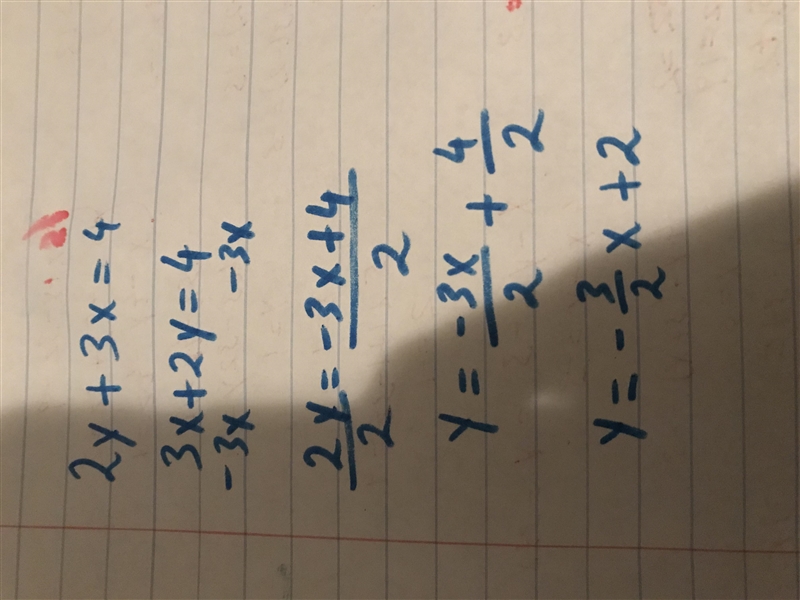 2y + 3x = 4
3x + 2y = 4
-3x -3x
2y/2 = -3x+4/2
y = -3x/2 + 4/2
y = -3/2 x + 2